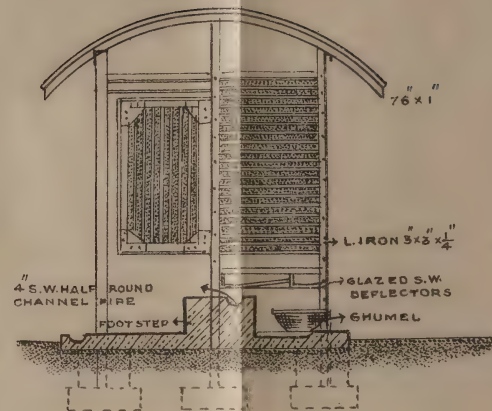 76" x 1"
L. IRON 3" x 3" x 1/4"
4" S.W. HALF ROUND
CHANNEL PIPE
GLAZED S.W.
DEFLECTORS
FOOT STEP
GHUMEL